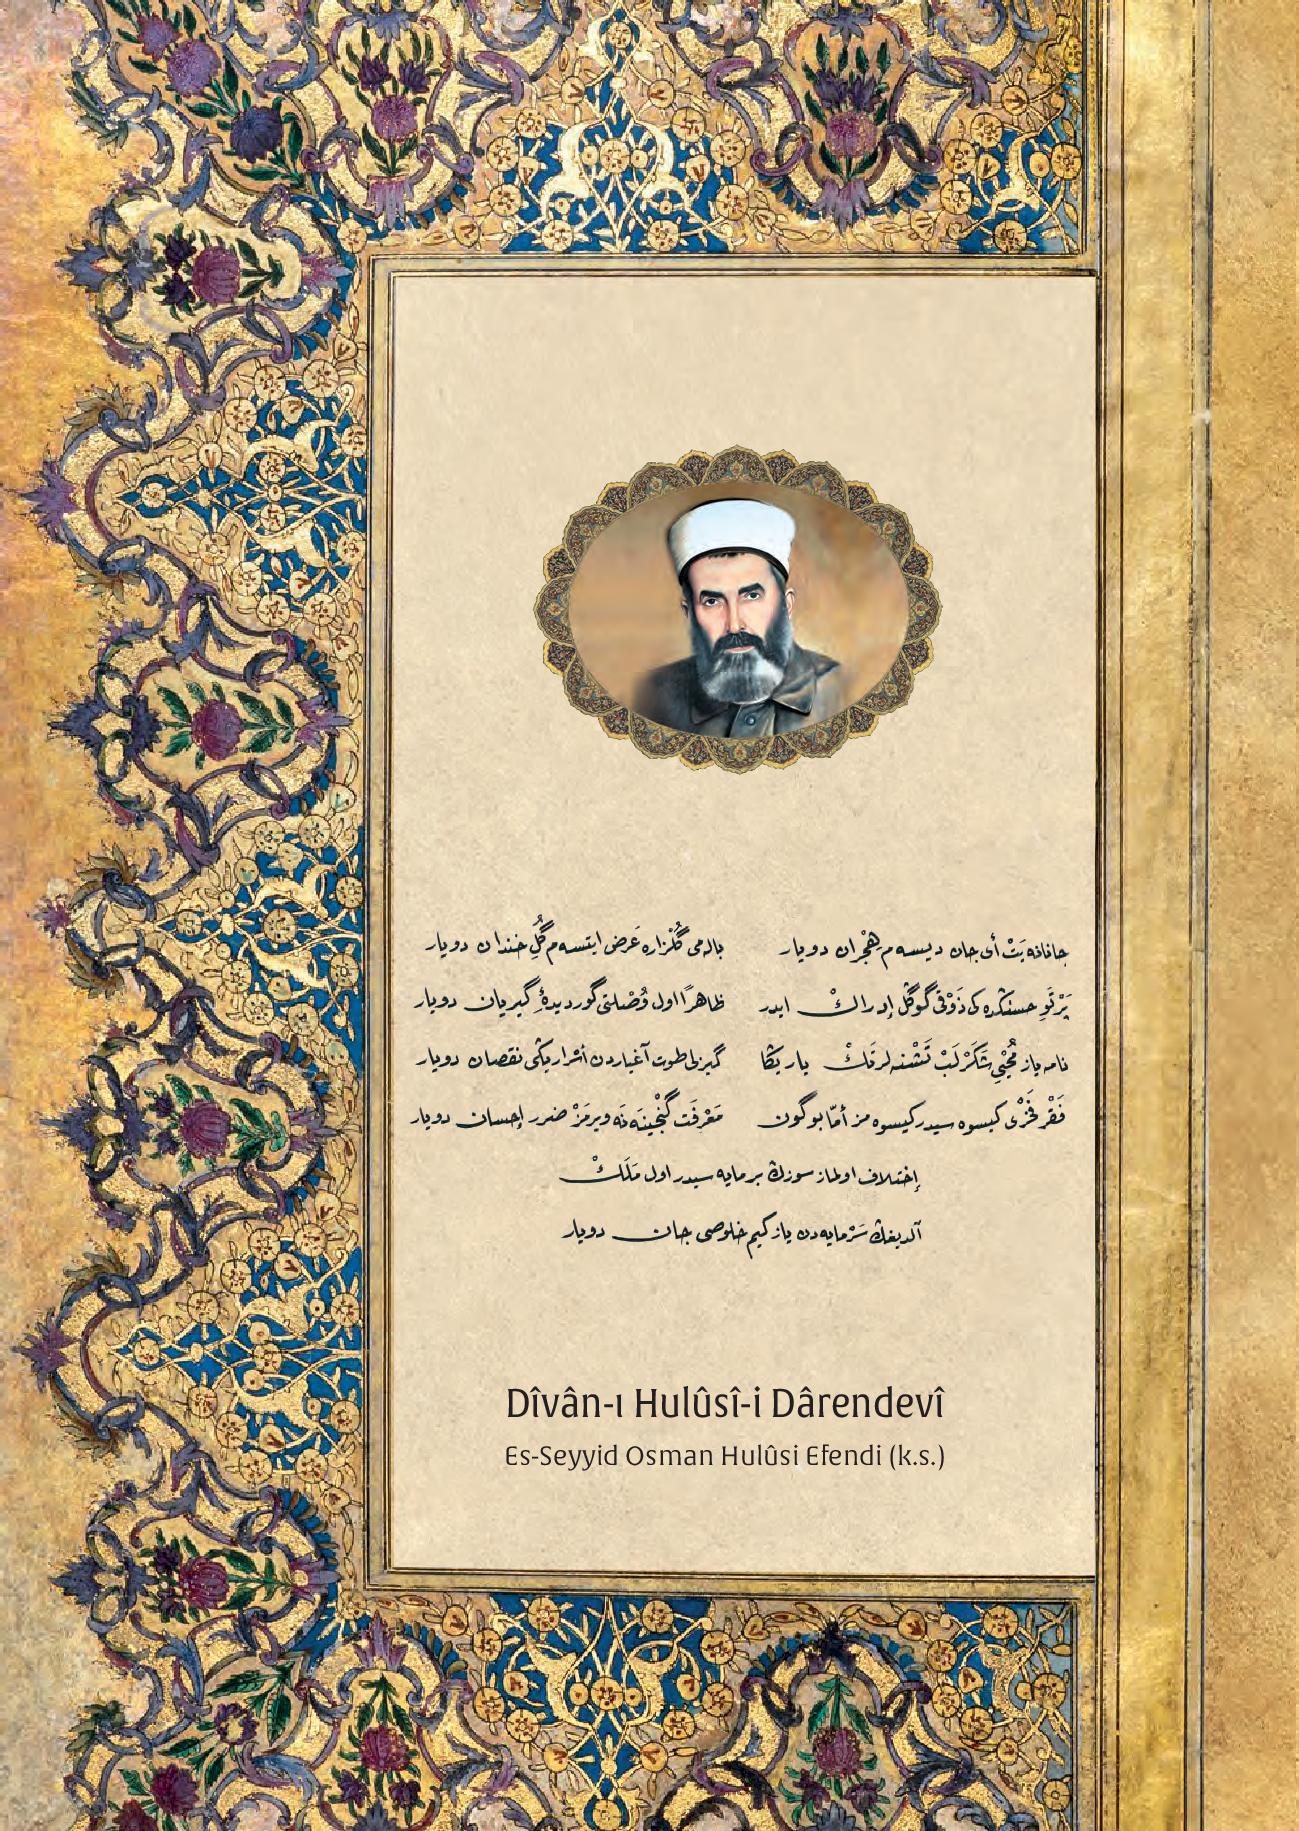 جانانه يَتْ أى جان ديسه‌م هِجْران دويار باله‌مى گُلْزاره عَرض ايتسه‌م گُلِ خندان دويار
پَرْتَوِ حسنڭده كى ذَوْقى گوڭل إدراك ايدر ظاهرًا اول وُصْلتى گور ديدهٔ گيريان دويار
نامه ياز مُحْيِ شَكَرْلَبْ تَشْنه‌لر تَك يار يڭا گيزلى طوت آغياردن أسْرار يڭى نقصان دويار
فَقْر فَخْرى كيسوه سيدر كيسوه‌مز أمّا بوگون مَعْرفَت گنْجينَه‌نَه ويرمَزْ ضرر إحسان دويار
إختلاف اولماز سوزڭ برمايه سيدر اول مَلَكْ
آلديغڭ سَرْمايه‌دن ياز كيم خلوصى جان دويار
Dîvân-ı Hulûsî-i Dârendevî
Es-Seyyid Osman Hulûsi Efendi (k.s.)